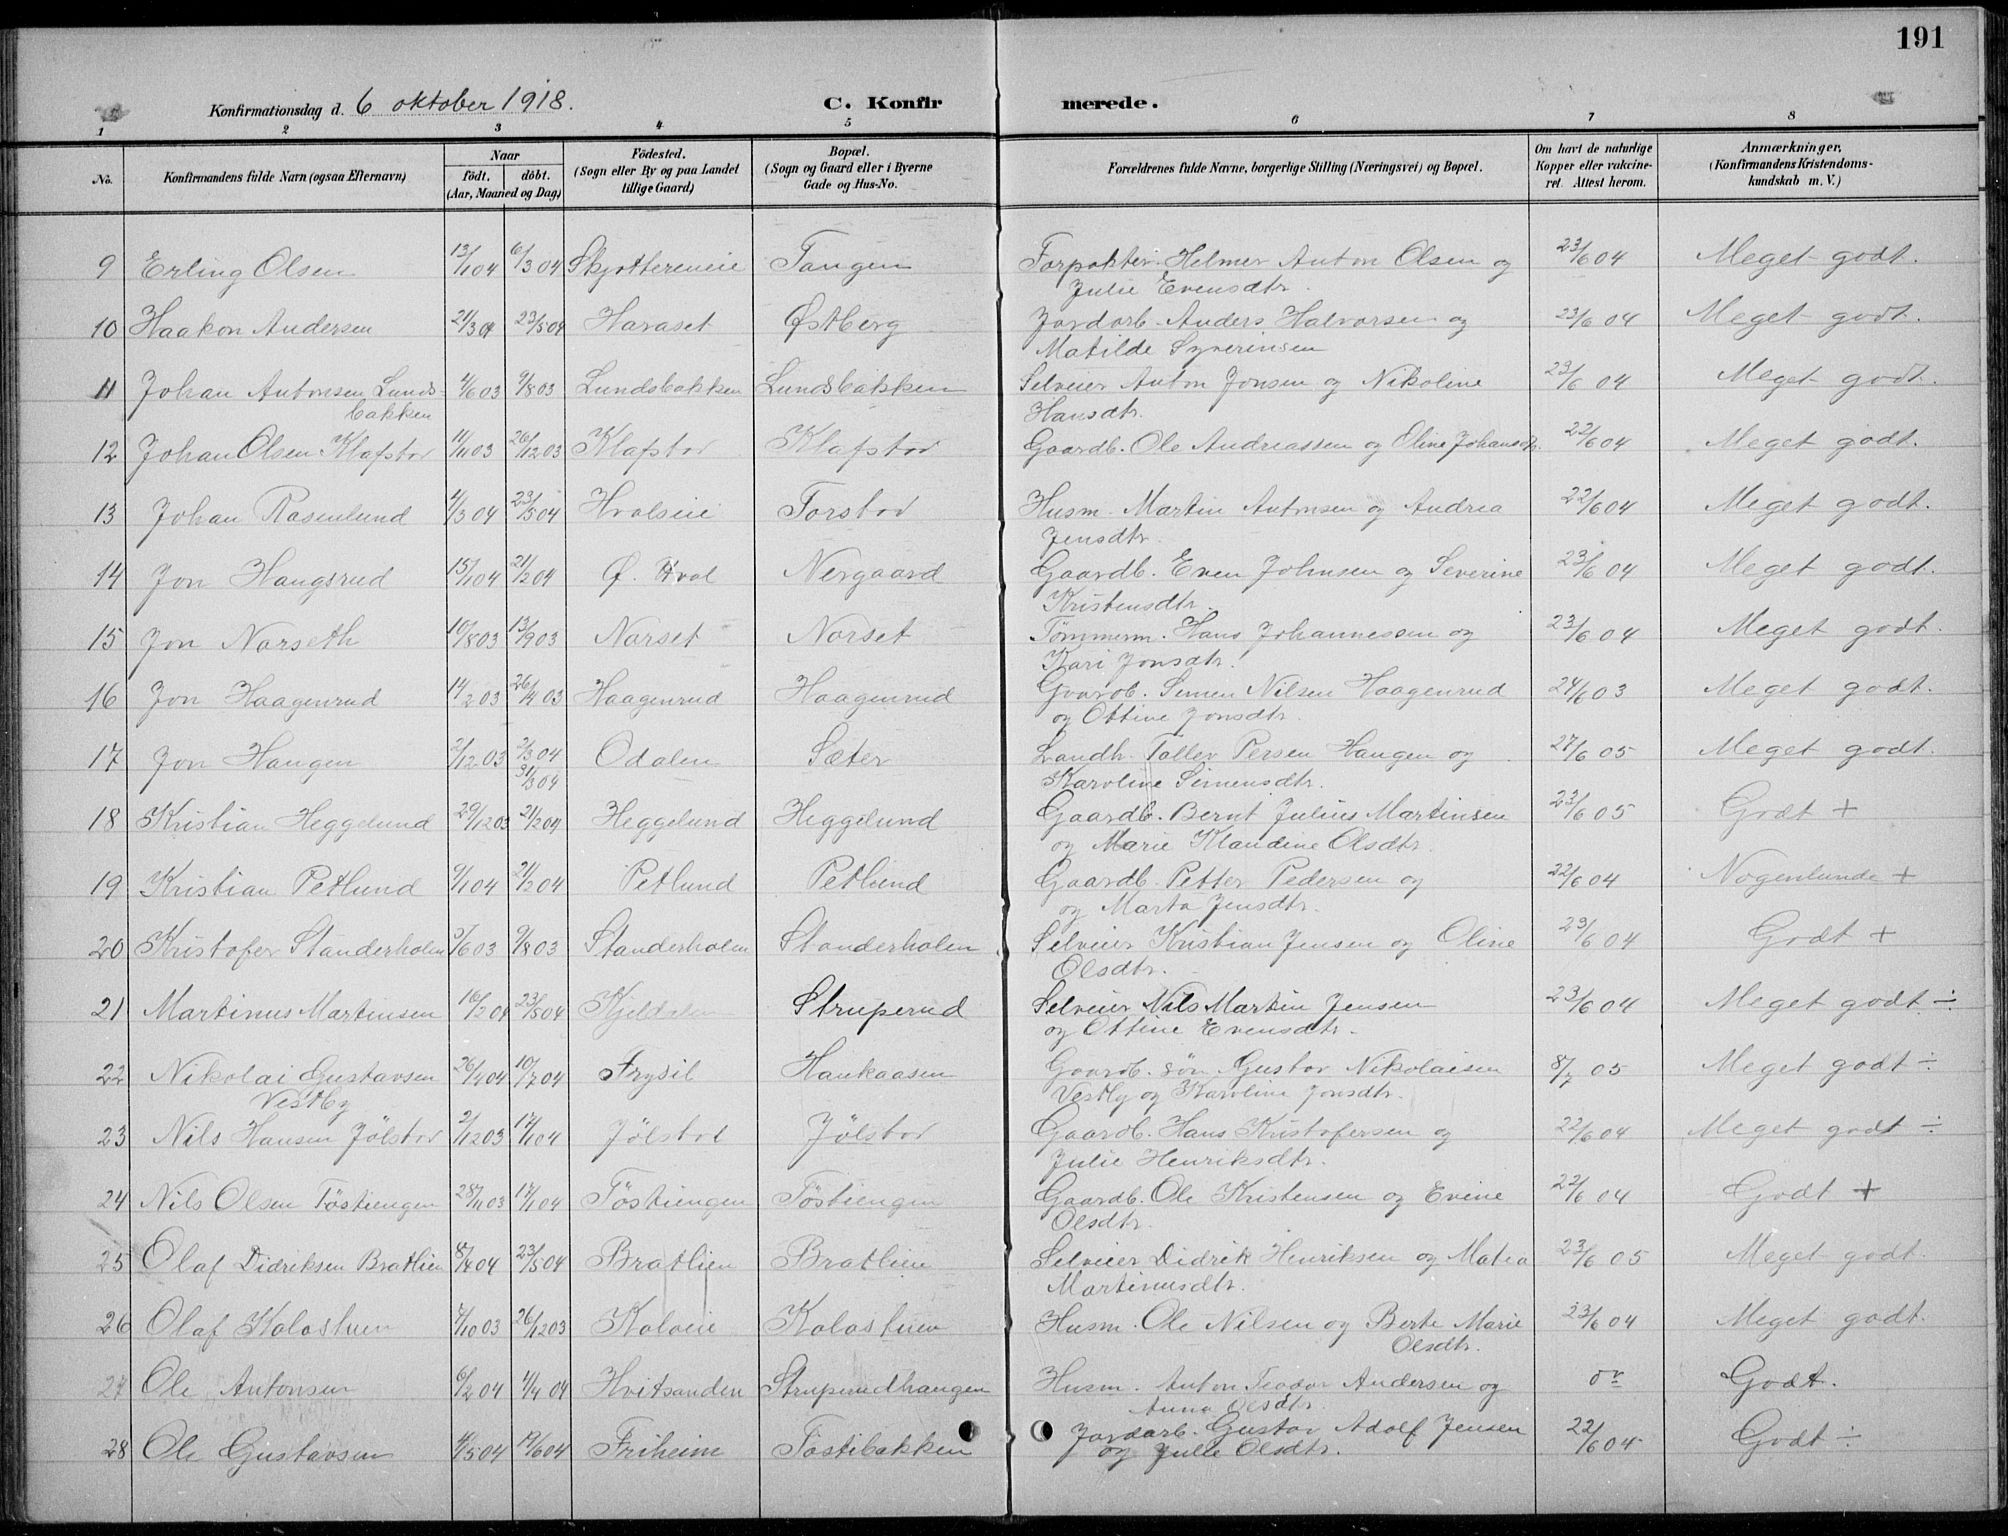 191
Konfirmationsdag d. 6 oktober 1918.
C. Konfirmerede.
1 2 3 4 5 6 7 8
No.
Konfirmandens fulde Navn (ogsaa Efternavn)
Naar
födt. döbt.
(Aar, Maaned og Dag)
Födested.
(Sogn eller By og paa Landet
tillige Gaard)
Bopæl.
(Sogn og Gaard eller i Byerne
Gade og Hus-No.
Forældrenes fulde Navne, borgerlige Stilling (Næringsvei) og Bopæl.
Om havt de naturlige
Kopper eller vakcine-
ret. Attest herom.
Anmærkninger,
(Konfirmandens Kristendoms-
kundskab m. V.)
9 Erling Olsen 13/1 04 6/3 04 Skjøttereneie Tangen Forpakter Helmer Anton Olsen og 23/6 04 Meget godt.
Julie Evensdtr.
10 Haakon Andersen 21/3 04 23/5 04 Haraset Østberg Jordarb. Anders Halvorsen og 23/6 04 Meget godt.
Matilde Syverinsen
11 Johan Antonsen Lunds- 4/6 03 9/8 03 Lundsbakken Lundsbakken Selveier Anton Jonsen og Nikoline 23/6 04 Meget godt.
bakken Hansdtr.
12 Johan Olsen Klafstor 11/11 03 26/12 03 Klafstor Klafstor Gaardb. Ole Andreassen og Eline Johansdtr. 22/6 04 Meget godt.
13 Johan Rasenlund 4/3 04 23/5 04 Hvalseie Torstor Husm. Martin Antonsen og Andrea 22/6 04 Meget godt.
Jensdtr.
14 Jon Haugsrud 15/1 04 21/2 04 Ø. Hval Nergaard Gaardb. Even Johnsen og Severine 23/6 04 Meget godt.
Kristensdtr.
15 Jon Norseth 10/8 03 13/9 03 Norset Norset Tømmerm. Hans Johannessen og 23/6 04 Meget godt.
Kari Jonsdtr.
16 Jon Haagenrud 14/2 03 26/4 03 Haagenrud Haagenrud Gaardb. Simen Nilsen Haagenrud 24/6 03 Meget godt.
og Ottine Jonsdtr.
17 Jon Haugen 2/12 03 2/3 04 Odalen Sæter Landh. Tollev Persen Haugen og 27/6 05 Meget godt.
31/3 04 Karoline Simensdtr.
18 Kristian Heggelund 29/12 03 21/2 04 Heggelund Heggelund Gaardb. Bernt Julius Martinsen 23/6 05 Godt +
og Marie Klaudine Olsdtr.
19 Kristian Petlund 9/1 04 21/2 04 Petlund Petlund Gaardb. Petter Pedersen og 22/6 04 Nogenlunde +
og Marta Jensdtr.
20 Kristofer Standerholen /6 03 9/8 03 Standerholen Standerholen Selveier Kristian Jensen og Oline 23/6 04 Godt +
Olsdtr.
21 Martinus Martinsen 16/2 04 23/5 04 Kjeldalen Struperud Selveier Nils Martin Jensen 23/6 04 Meget godt ÷
og Ottine Evensdtr.
22 Nikolai Gustavsen 26/4 04 10/7 04 Trysil Haukaasen Gaardb. søn Gustav Nikolaisen 8/7 05 Meget godt ÷
Vestby Vestby og Karoline Jonsdtr.
23 Nils Hansen Jölstor 2/12 03 17/1 04 Jölstor Jölstor Gaardb. Hans Kristofersen og 22/6 04 Meget godt ÷
Julie Henriksdtr.
24 Nils Olsen Töstiengen 28/11 03 17/1 04 Töstiengen Töstiengen Gaardb. Ole Kristensen og Evine 22/6 04 Godt +
Olsdtr.
25 Olaf Didriksen Bratlien 8/4 04 23/5 04 Bratlien Bratlien Selveier Didrik Henriksen og Matea 23/6 05 Meget godt.
Martinusdtr.
26 Olaf Kolostuen 4/10 03 26/12 03 Koloeie Kolostuen Husm. Ole Nilsen og Berte Marie 23/6 04 Meget godt.
Olsdtr.
27 Ole Antonsen 6/2 04 4/4 04 Hvitsanden Struperudhaugen Husm. Anton Teodor Andersen og do Godt.
Anna Olsdtr.
28 Ole Gustavsen 4/5 04 19/6 04 Friheim Töstibakken Jordarb. Gustav Adolf Jensen 22/6 04 Godt ÷
og Julle Olsdtr.